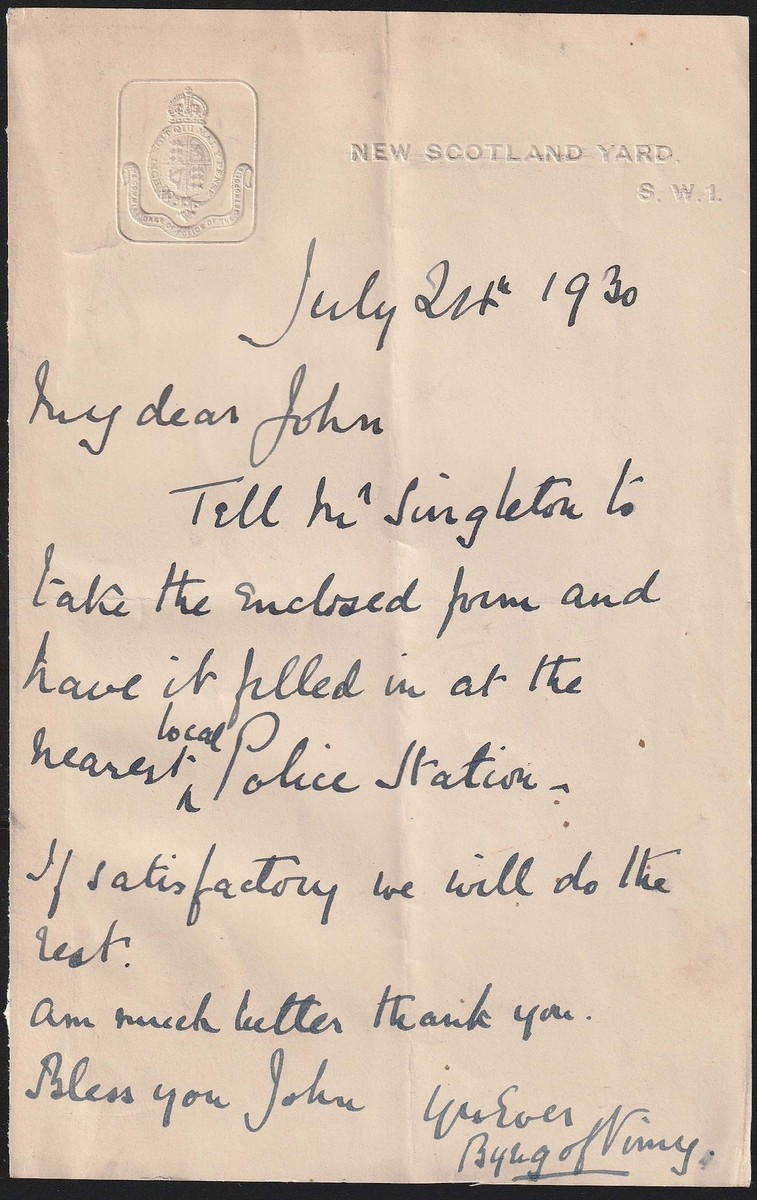 HONI SOIT QUI MAL Y PENSE
COMMISSIONER OF POLICE OF THE METROPOLIS
NEW SCOTLAND YARD.
S. W. 1.
July 24th 1930
My dear John
Tell Mr Singleton to
take the enclosed form and
have it filled in at the
nearest local Police Station -
If satisfactory we will do the
rest.
Am much better thank you.
Bless you John
Yrs Ever
Byng of Vimy.